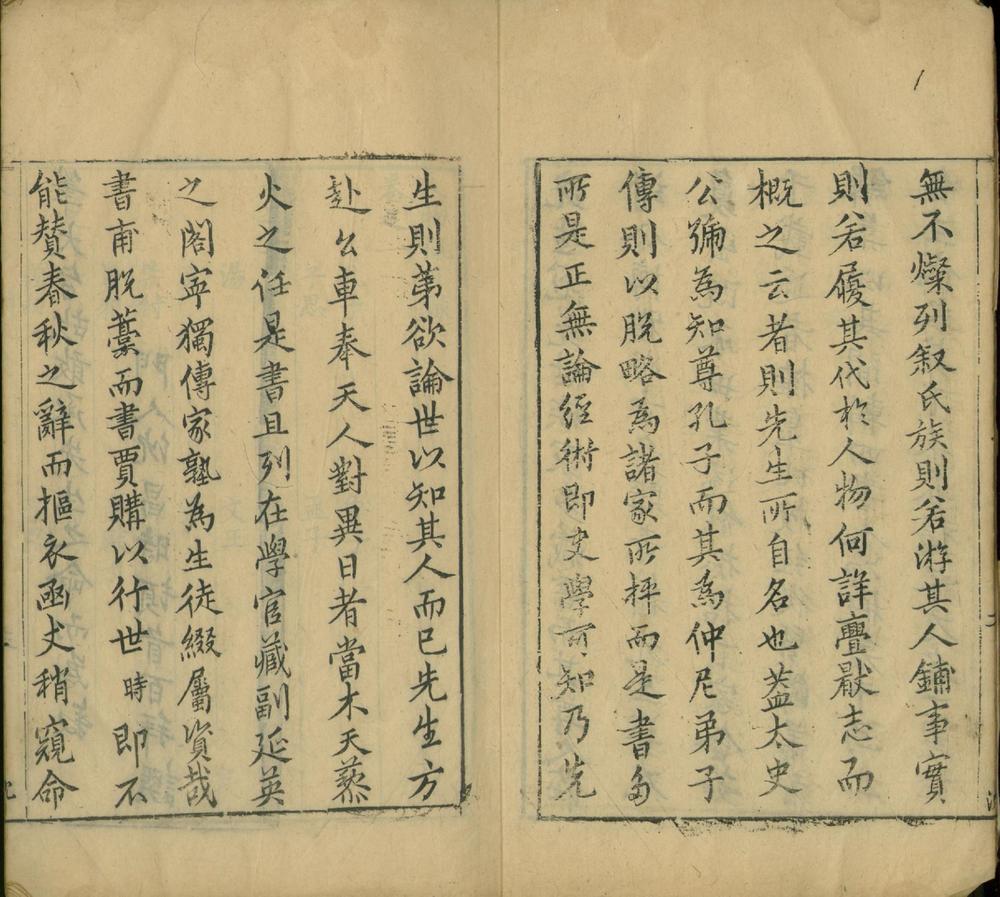 無不燦列叙氏族則若游其人鋪事實
則若履其代於人物何詳亹厭志而
概之云者則先生所自名也葢太史
公號為知尊孔子而其為仲尼弟子
傳則以脫略為諸家所抨而是書多
所是正無論經術即史學可知乃先
生則第欲論世以知其人而已先生方
赴公車奉天人對異日者當木天藜
火之任是書且列在學官藏副延英
之閣寧獨傳家塾為生徒綴屬資哉
書甫脫藁而書賈購以行世時即不
能賛春秋之辭而摳衣函丈稍窺命